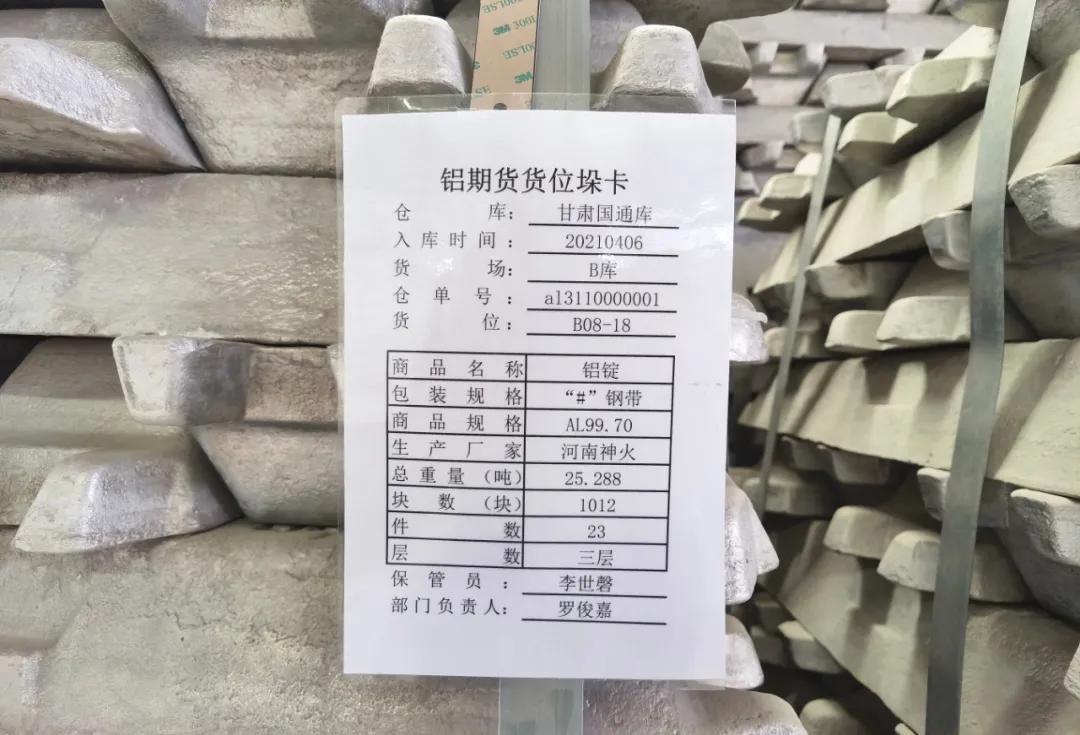 100LSE
3M 300LSE
3M 100LSE
铝期货货位垛卡
仓库：甘肃国通库
入库时间：20210406
货场：B库
仓单号：al3110000001
货位：B08-18
商品名称 铝锭
包装规格 “#”钢带
商品规格 AL99.70
生产厂家 河南神火
总重量（吨） 25.288
块数（块） 1012
件数 23
层数 三层
保管员：李世磬
部门负责人：罗俊嘉